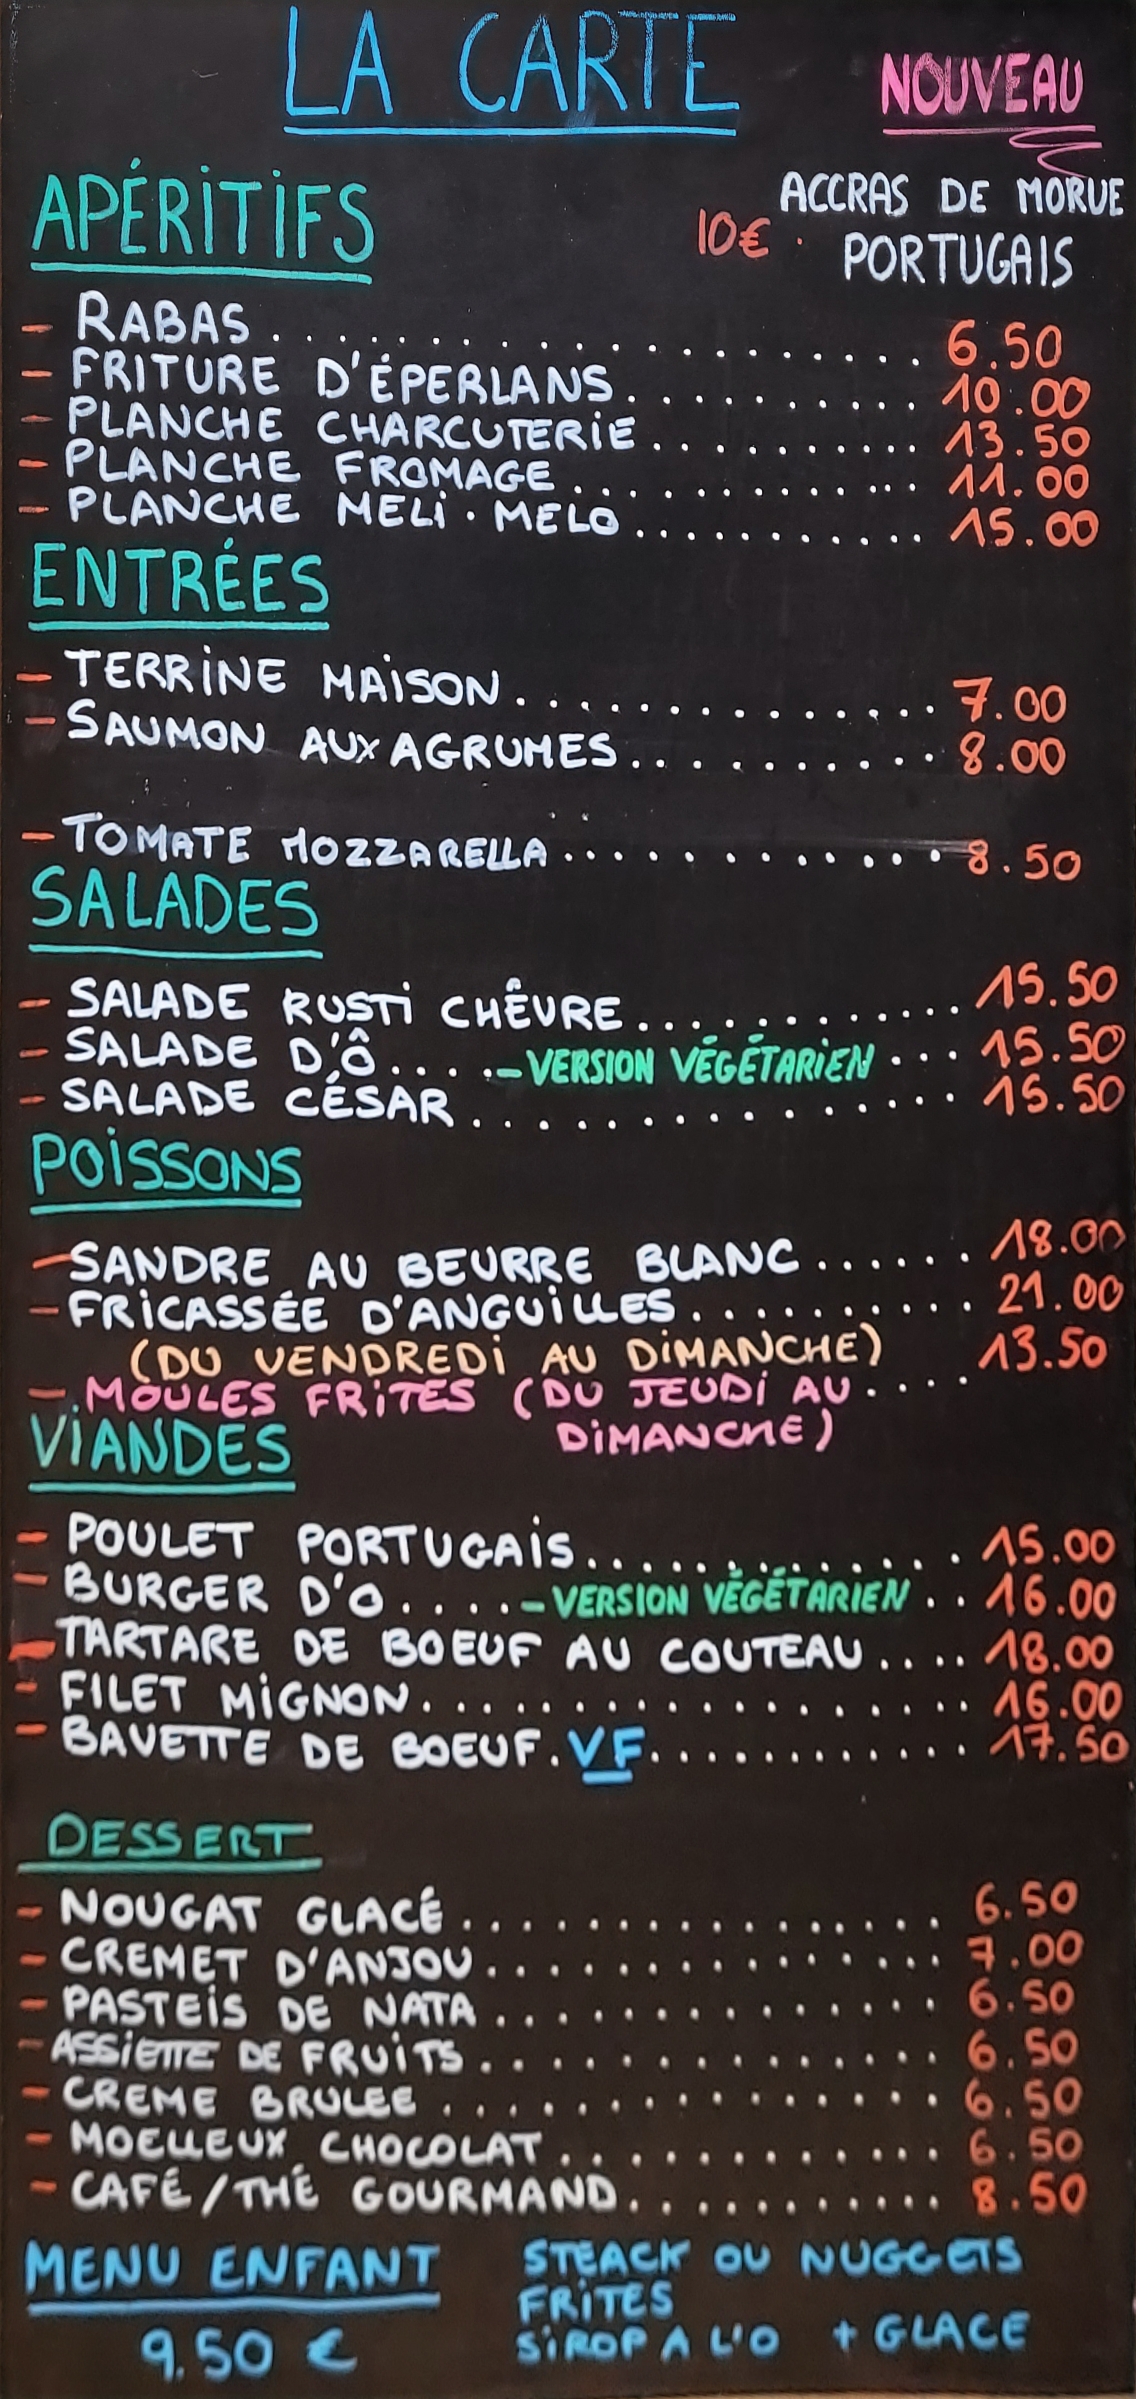 LA CARTE
NOUVEAU
ACCRAS DE MORUE
10€ · PORTUGAIS
APÉRITIFS
- RABAS . . . . . . . . . . . . . . . . . . . . 6.50
- FRITURE D'ÉPERLANS . . . . . . . . . . . 10.00
- PLANCHE CHARCUTERIE . . . . . . . . . . 13.50
- PLANCHE FROMAGE . . . . . . . . . . . . . 11.00
- PLANCHE MELI · MELO . . . . . . . . . . . 15.00
ENTRÉES
- TERRINE MAISON . . . . . . . . . . . . . . 7.00
- SAUMON AUX AGRUMES . . . . . . . . . . 8.00
- TOMATE MOZZARELLA . . . . . . . . . . . . 8.50
SALADES
- SALADE RUSTI CHÊVRE . . . . . . . . . . . . 15.50
- SALADE D'Ô . . . . . - VERSION VÉGÉTARIEN . . . 15.50
- SALADE CÉSAR . . . . . . . . . . . . . . . . 15.50
POISSONS
- SANDRE AU BEURRE BLANC . . . . . . 18.00
- FRICASSÉE D'ANGUILLES . . . . . . . . . . 21.00
(DU VENDREDI AU DIMANCHE)
- MOULES FRITES (DU JEUDI AU . . . . 13.50
DIMANCHE)
VIANDES
- POULET PORTUGAIS . . . . . . . . . . . . . 15.00
- BURGER D'O . . . . . - VERSION VÉGÉTARIEN . . 16.00
- TARTARE DE BOEUF AU COUTEAU . . . . 18.00
- FILET MIGNON . . . . . . . . . . . . . . . . . . 16.00
- BAVETTE DE BOEUF . VF . . . . . . . . . . . 17.50
DESSERT
- NOUGAT GLACÉ . . . . . . . . . . . . . . . 6.50
- CREMET D'ANJOU . . . . . . . . . . . . . . 7.00
- PASTEIS DE NATA . . . . . . . . . . . . . . 6.50
- ASSIETTE DE FRUITS . . . . . . . . . . . . . . 6.50
- CREME BRULEE . . . . . . . . . . . . . . . 6.50
- MOELLEUX CHOCOLAT . . . . . . . . . . . . 6.50
- CAFÉ / THÉ GOURMAND . . . . . . . . . . 8.50
MENU ENFANT
9.50 €
STEACK OU NUGGETS
FRITES
SIROP A L'O + GLACE